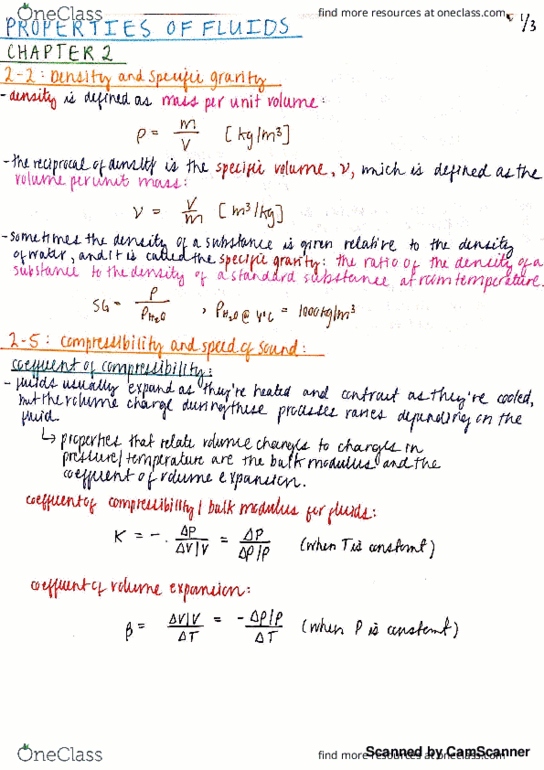 OneClass
find more resources at oneclass.com
1/3
PROPERTIES OF FLUIDS
CHAPTER 2
2-2: Density and Specific gravity
- density is defined as mass per unit volume:
ρ = m/V [kg/m³]
- the reciprocal of density is the specific volume, v, which is defined as the
volume per unit mass:
v = V/m [m³/kg]
- sometimes the density of a substance is given relative to the density
of water, and it is called the specific gravity: the ratio of the density of a
substance to the density of a standard substance at room temperature.
SG = ρ/ρH₂O , ρH₂O @ 4°C = 1000 kg/m³
2-5: compressibility and speed of sound:
coefficient of compressibility:
- fluids usually expand as they're heated and contract as they're cooled,
but the volume change during these processes varies depending on the
fluid.
↳ properties that relate volume changes to changes in
pressure/temperature are the bulk modulus and the
coefficient of volume expansion.
coefficient of compressibility/bulk modulus for fluids:
K = - ΔP/(ΔV/V) = ΔP/(Δρ/ρ) (when T is constant)
coefficient of volume expansion:
β = (ΔV/V)/ΔT = -(Δρ/ρ)/ΔT (when P is constant)
OneClass
find more resources at oneclass.com
Scanned by CamScanner